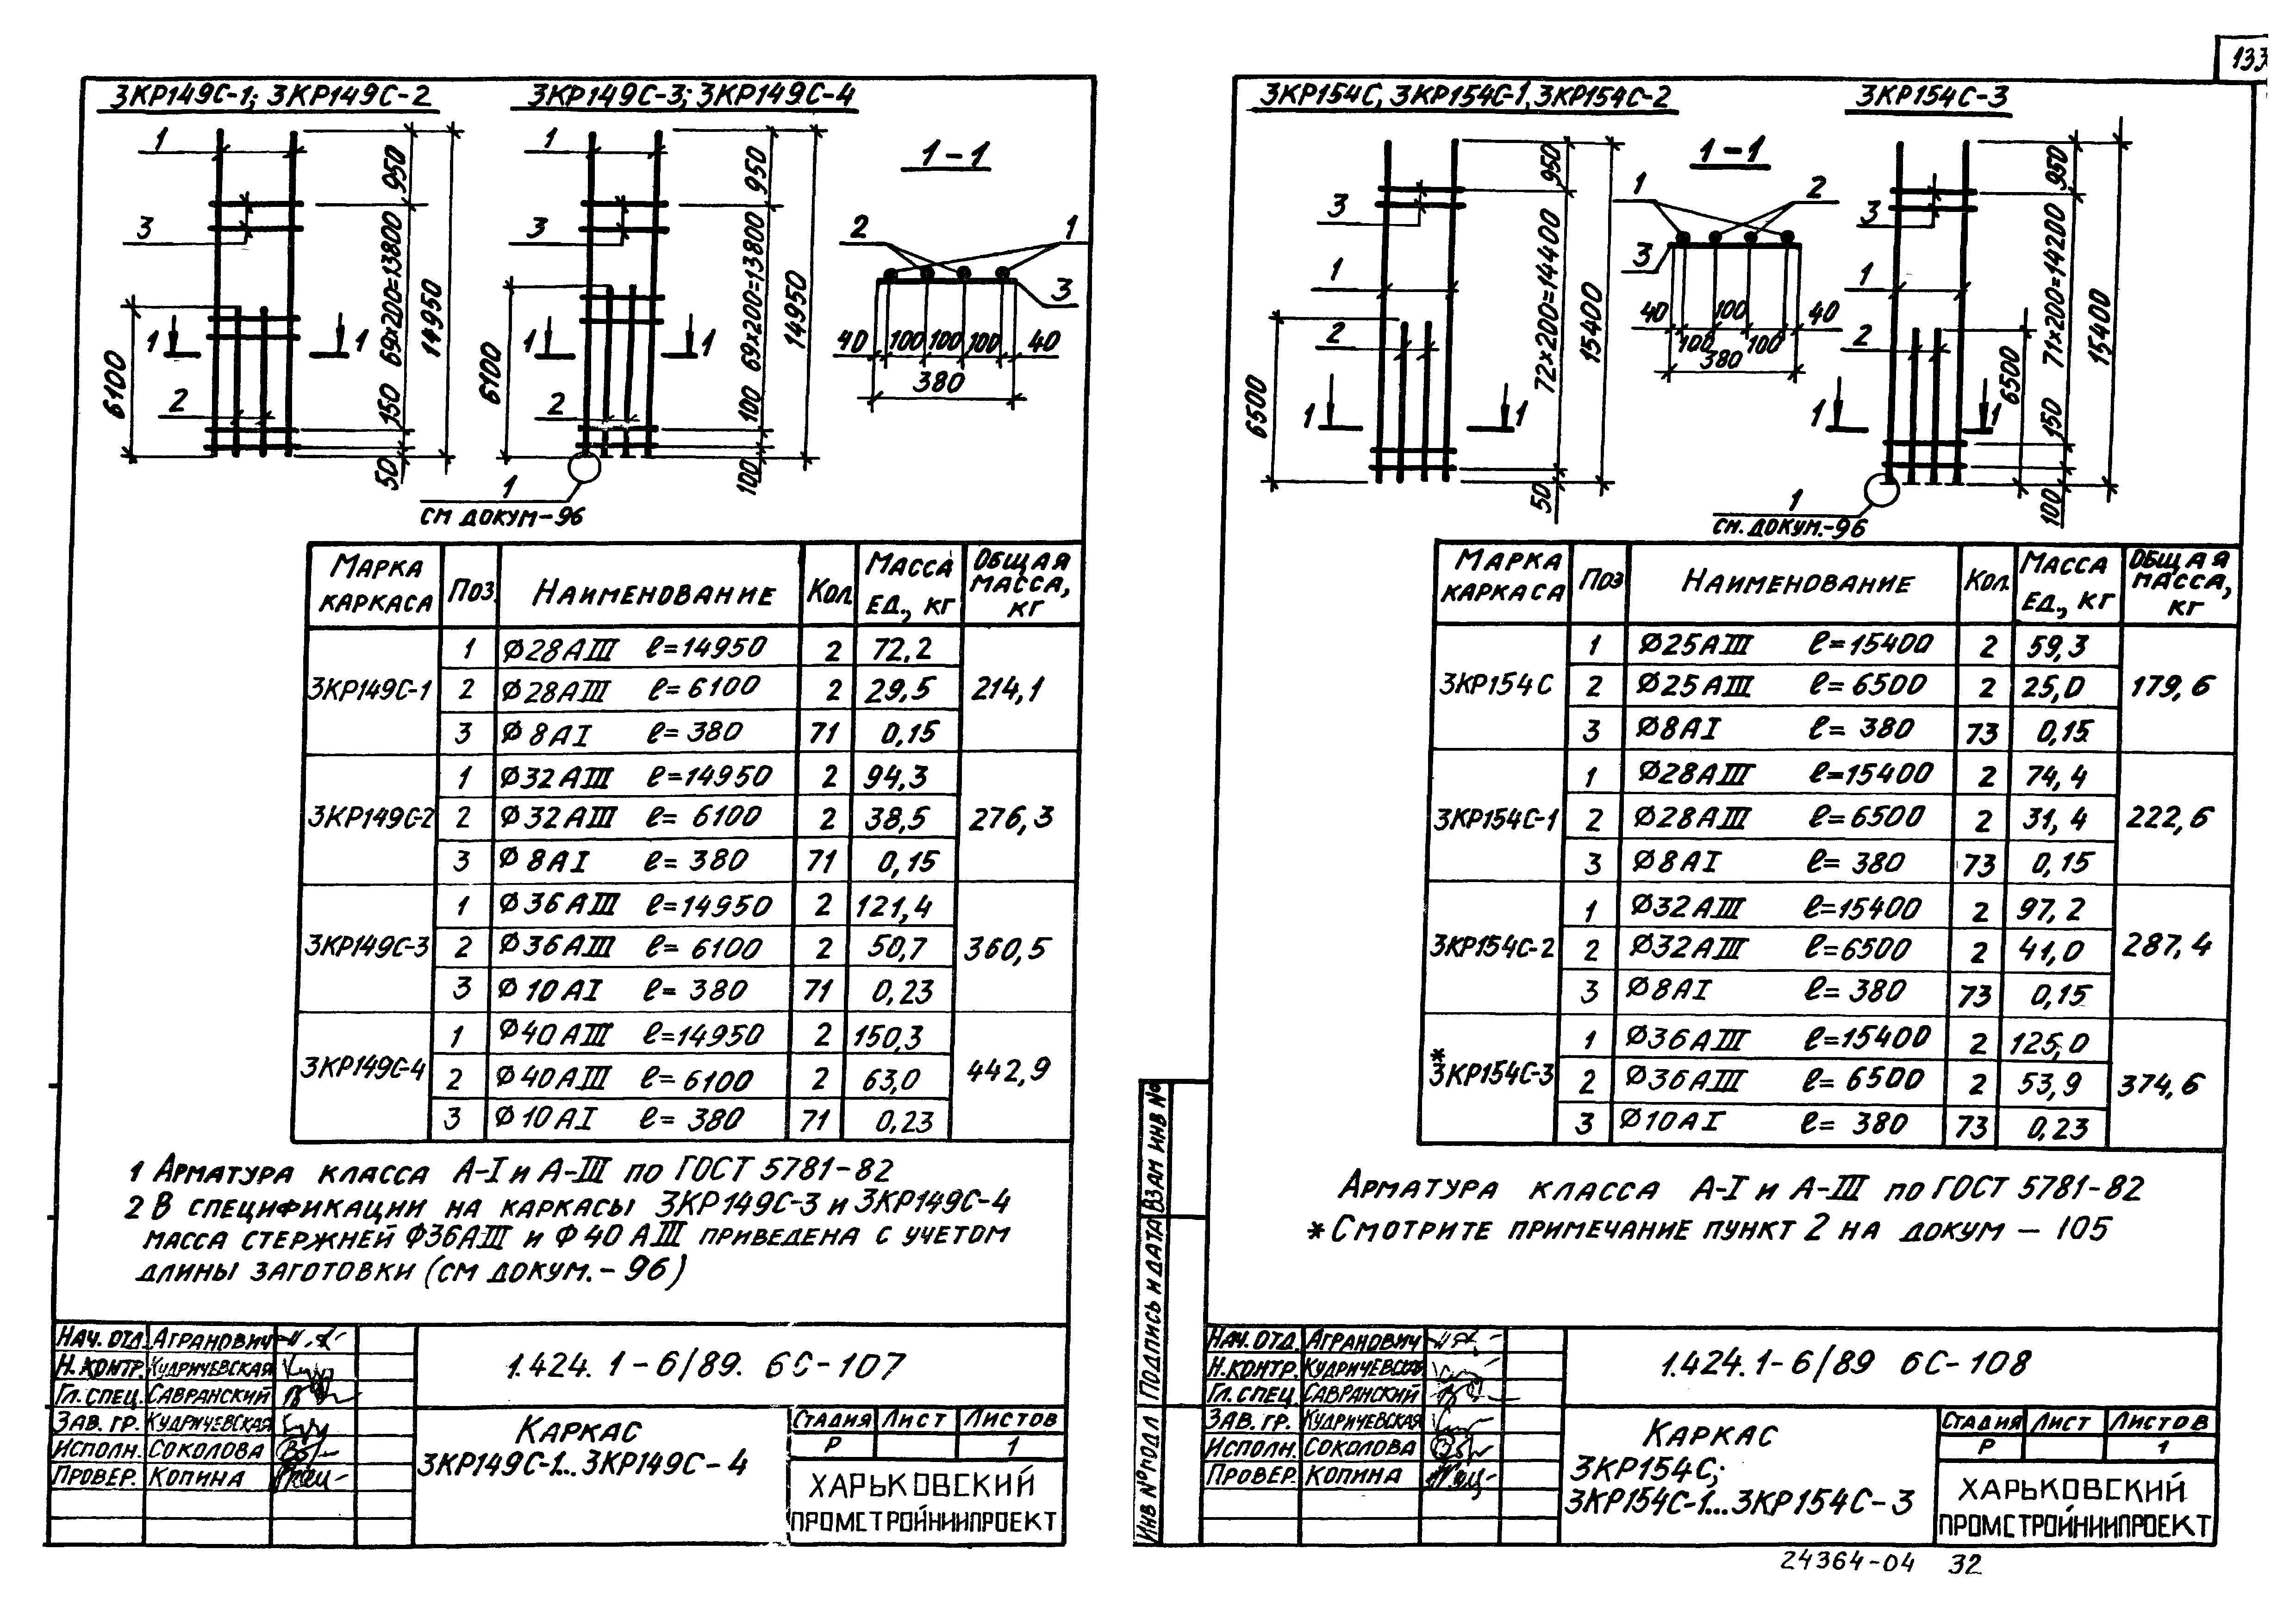 133
3КР149С-1; 3КР149С-2
3КР149С-3; 3КР149С-4
1
3
2
1
1
6100
950
69х200=13800
150
50
14950
1
3
2
1
1
6100
950
69х200=13800
100
100
14950
1
см докум-96
1-1
2
1
3
40
100
100
100
40
380
Марка каркаса
Поз.
Наименование
Кол.
Масса ед., кг
Общая масса, кг
3КР149С-1
1 Ø28АIII ℓ=14950 2 72,2
2 Ø28АIII ℓ=6100 2 29,5
3 Ø8АI ℓ=380 71 0,15
214,1
3КР149С-2
1 Ø32АIII ℓ=14950 2 94,3
2 Ø32АIII ℓ=6100 2 38,5
3 Ø8АI ℓ=380 71 0,15
276,3
3КР149С-3
1 Ø36АIII ℓ=14950 2 121,4
2 Ø36АIII ℓ=6100 2 50,7
3 Ø10АI ℓ=380 71 0,23
360,5
3КР149С-4
1 Ø40АIII ℓ=14950 2 150,3
2 Ø40АIII ℓ=6100 2 63,0
3 Ø10АI ℓ=380 71 0,23
442,9
1 Арматура класса А-I и А-III по ГОСТ 5781-82
2 В спецификации на каркасы 3КР149С-3 и 3КР149С-4
масса стержней Ф36АIII и Ф40АIII приведена с учетом
длины заготовки (см докум.-96)
Нач. отд. Агранович
Н.контр. Кудричевская
Гл. спец. Савранский
Зав. гр. Кудричевская
Исполн. Соколова
Провер. Копина
1.424.1-6/89. 6С-107
Каркас
3КР149С-1...3КР149С-4
Стадия Лист Листов
Р 1
ХАРЬКОВСКИЙ
ПРОМСТРОЙНИИПРОЕКТ
3КР154С, 3КР154С-1, 3КР154С-2
3КР154С-3
3
1
2
1
1
6500
950
72х200=14400
50
15400
1-1
1
2
3
40
100
100
100
40
380
3
1
2
1
1
6500
950
71х200=14200
150
100
15400
1
см. докум.-96
Марка каркаса
Поз
Наименование
Кол.
Масса ед., кг
Общая масса, кг
3КР154С
1 Ø25АIII ℓ=15400 2 59,3
2 Ø25АIII ℓ=6500 2 25,0
3 Ø8АI ℓ=380 73 0,15
179,6
3КР154С-1
1 Ø28АIII ℓ=15400 2 74,4
2 Ø28АIII ℓ=6500 2 31,4
3 Ø8АI ℓ=380 73 0,15
222,6
3КР154С-2
1 Ø32АIII ℓ=15400 2 97,2
2 Ø32АIII ℓ=6500 2 41,0
3 Ø8АI ℓ=380 73 0,15
287,4
*3КР154С-3
1 Ø36АIII ℓ=15400 2 125,0
2 Ø36АIII ℓ=6500 2 53,9
3 Ø10АI ℓ=380 73 0,23
374,6
Арматура класса А-I и А-III по ГОСТ 5781-82
*Смотрите примечание пункт 2 на докум – 105
Инв №подл
Подпись и дата
Взам инв №
Нач. отд. Агранович
Н.контр. Кудричевская
Гл. спец. Савранский
Зав. гр. Кудричевская
Исполн. Соколова
Провер. Копина
1.424.1-6/89 6С-108
Каркас
3КР154С;
3КР154С-1...3КР154С-3
Стадия Лист Листов
Р 1
ХАРЬКОВСКИЙ
ПРОМСТРОЙНИИПРОЕКТ
24364-04 32